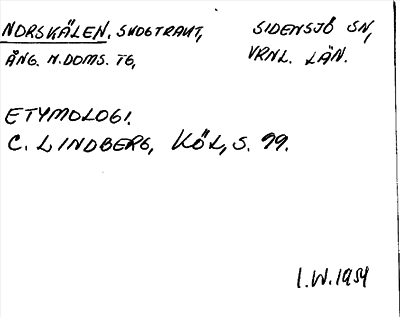 NORSKÄLEN, SKOGTRAKT, SIDENSJÖ SN,
ÅNG. N. DOMS. TG, VRNL. LÄN.
ETYMOLOGI.
C. LINDBERG, KÖL, S. 99.
I.W. 1954